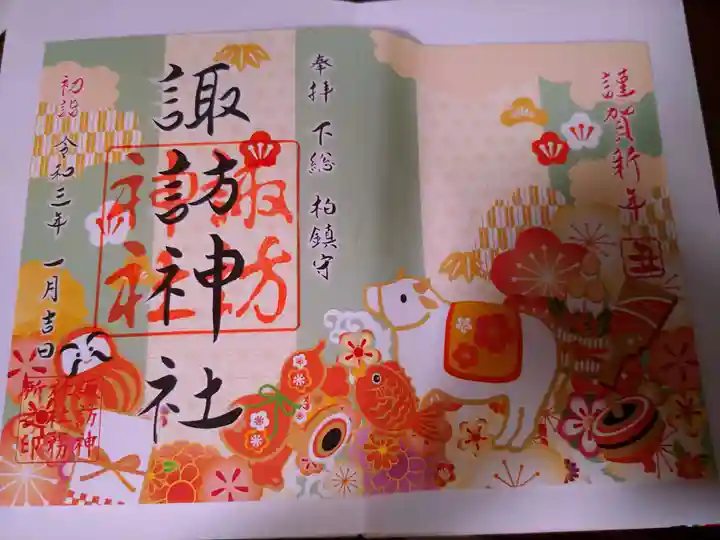 謹賀新年
丑
奉拝 下総 柏鎮守
諏訪神社
諏訪
神社
初詣 令和三年 一月吉日
諏訪神